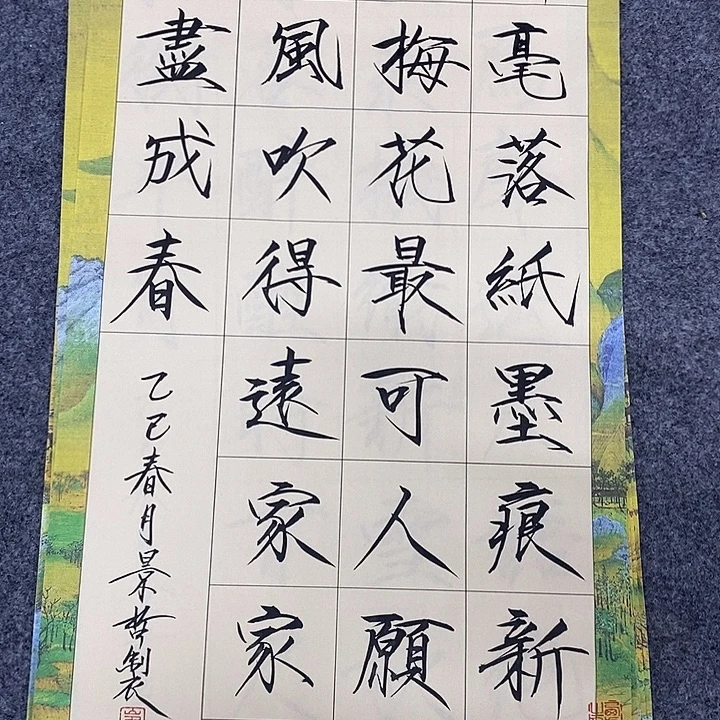 亳落紙墨痕新
梅花最可人願
風吹得遠家家
盡成春
乙巳春月景哲製